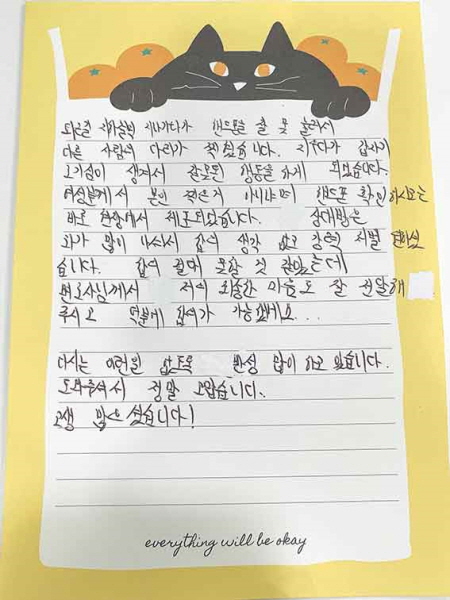 퇴근길 지하철역 지나가다가 핸드폰을 잘 못 눌러서
다른 사람의 다리가 찍혔습니다. 지우다가 갑자기
호기심이 생겨서 잘못된 행동을 하게 되었습니다.
여성분께서 본인 찍은거 아니냐며 핸드폰 확인하시고는
바로 현장에서 체포되었습니다. 상대방은
화가 많이 나셔서 합의 생각 없고 강력 처벌 원하셨
습니다. 합의 절대 못할 것 같았는데
변호사님께서 저의 죄송한 마음도 잘 전달해
주시고 덕분에 합의가 가능했네요...
다시는 이런일 없도록 반성 많이 하고 있습니다.
도와주셔서 정말 고맙습니다.
고생 많으셨습니다!
everything will be okay